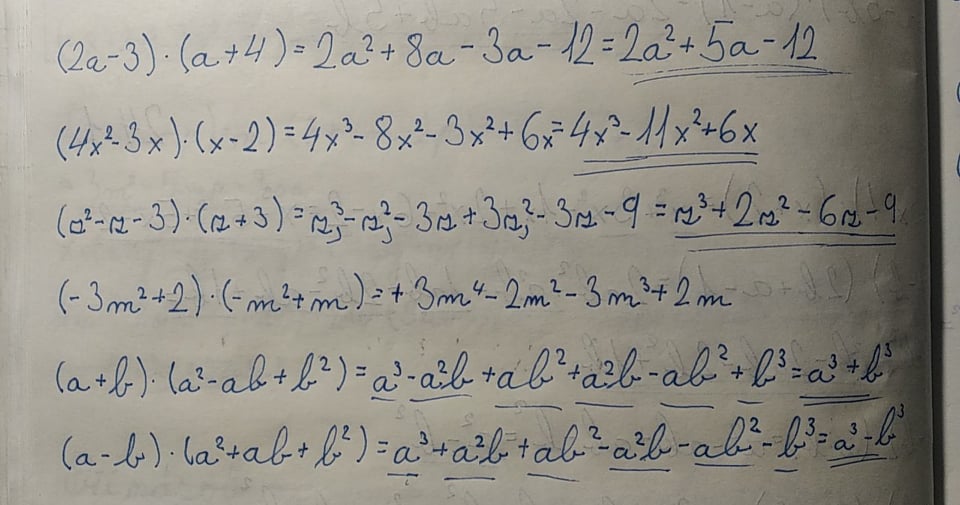 (2a-3)·(a+4)=2a²+8a-3a-12=2a²+5a-12
(4x²-3x)·(x-2)=4x³-8x²-3x²+6x=4x³-11x²+6x
(n²-n-3)·(n+3)=n³-n²-3n+3n²-3n-9=n³+2n²-6n-9
(-3m²+2)·(-m²+m)=+3m⁴-2m²-3m³+2m
(a+b)·(a²-ab+b²)=a³-a²b+ab²+a²b-ab²+b³=a³+b³
(a-b)·(a²+ab+b²)=a³+a²b+ab²-a²b-ab²-b³=a³-b³